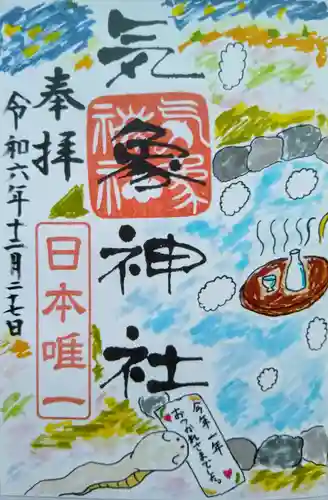 奉拝
気象神社
気象神社
令和六年十二月二十七日
日本唯一
今年一年
おつかれさまでした。